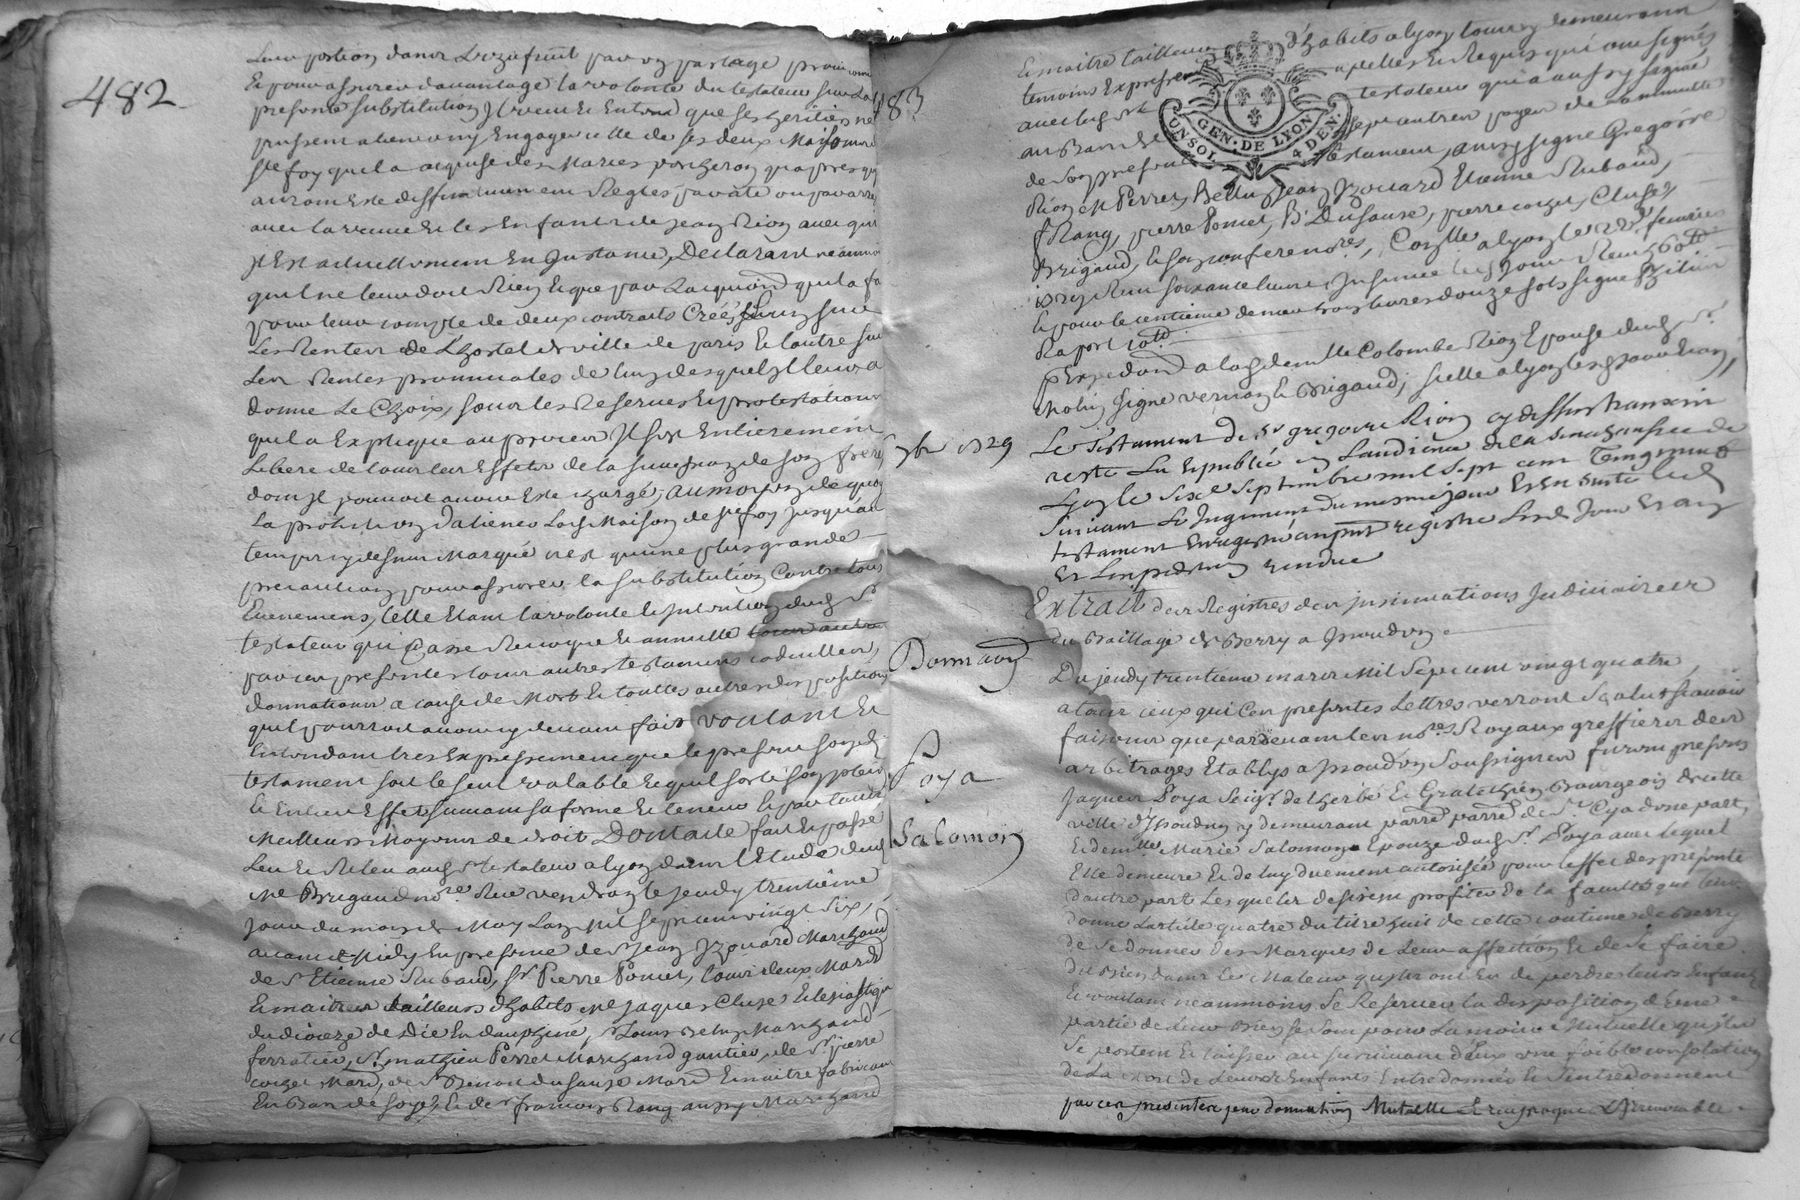 482
Leur portion dans l'uzufruit par un partage
Et pour assurer davantage la volonté du testateur sur la
presente substitution Il veut et entend que ses heritiers ne
puissent aliener ny Engager celle de ses deux Maisons de
Ste foy qu'il a acquise des Maries qu'apres qu'il
aura esté diffinitivement Reglés
avec la veuve et les Enfants de Jean Rion avec qui
Il Est actuellement En Instance, Declarant neanmoins
qu'il ne leur doit Rien Et que par
pour leur compte de deux contrats Créés l'un sur
Les Rentes de L'hostel de ville de paris Et l'autre sur
Les Rentes provinciales de desquels Il leur a
donné Le Choix, sous les Reserves Et protestations
qu'il a Expliqué au Il soit Entierement
Liberé de tous les Effets de la de son frere
dont Il pouvoit avoir Esté chargé, au moyen de quoy
La prohibition d'aliener La de Ste foy jusqu'au
temps cy dessus Marqué n'est qu'une plus grande
precaution pour assurer la substitution Contre tous
Evenemens, telle Etant la volonté Et Intention dud. Sr.
testateur qui Casse Revoque Et annulle tous autres
par ces presentes tous autres testamens codicilles,
donnations a cause de Mort Et touttes autres dispositions
qu'il pourroit avoir cy devant fait voulant Et
Entendant tres Expressement que le present son
testament soit le seul valable Et qu'il sorte son plein
Et Entier Effet suivant sa forme Et teneur Et par tous
Meilleurs Moyens de droit Dont acte fait Et passé
Leu Et Releu aud. Sr. testateur a lyon dans l'Etude dud.
Me Brigaud nore. Rue le jeudy trentième
jour du mois de May L'an Mil sept cent vingt six,
avant Midy En presence de Sr Jean Izouard Marchand
de Sr Etienne Rubaud, Sr. Pierre Poncet, tous deux Marchds
Et maitres tailleurs d'habits Me Jaques Cluse Eclesiastique
du diocese de Die En dauphiné, Sr Louis Marchand
ferratier, Sr. Mathieu Perret Marchand gantier, de Sr. pierre
Marchd, de Sr Benoit dusauze Marchd Et maitre fabricant
En Bas de soye, Et de Sr francois Rang aussy Marchand
83
Et maitre tailleur d'habits a lyon tous y demeurans
temoins Expressement appellés Et Requis qui ont signés
avec led. Sr testateur qui a aussy signé
au Bas de
de son present testament, ainsy signé Gregoire
Rion M Perret, Jean Izouard Etienne Rubaud,
f Rang, pierre Poncet, B Dusauze, pierre Cluse,
Brigaud, le Nores., Conllé a lyon le fevrier
1729 Reçu soixante livres, Insinué led. jour Reçu
Et pour le centieme denier trois livres douze sols signé
Raport
p Expedion a lad. demlle Colombe Rion Epouse dud. Sr.
signé vernon Et Brigaud, scellé a lyon les jour Et an,
7bre 1729
Le Testament de Sr gregoire Rion cy dessus transcrit
resté Lu Et publié en L'audience de la senechaussée de
Lyon le sixe Septembre mil sept cent vingt neuf
suivant Le Jugement du mesme jour Et En suitte led.
testament Enregistré au pnt registre Lesd. Jour Et an
Et L'expedition rendue
Extrait des Registres des Insinuations Judiciaires
du Baillage de Berry a Issoudun.
Donnaon
Poya
Salomon
Du jeudy trentième mars Mil Sept cent vingt quatre,
a tous ceux qui Ces presentes Lettres verront Salut scavoir
faisons que pardevant les nores Royaux greffiers des
arbitrages Etablys a Issoudun Soussignez furent presens
Jaques Poya Seigr. de lherbé Et Bourgeois de cette
ville d'Issoudun y demeurant parroisse de St. Cyr d'une part,
Et demlle. Marie Salomon Epouze dud. Sr. Poya avec lequel
Elle demeure Et de luy duement autorisée pour l'effet des presentes
d'autre part Lesquelles desirent profiter de la faculté que leur
donne L'article quatre du titre huit de cette coutume de Berry
de Se donner des Marques de Leur affection Et de Se faire
du Bien dans Le Maleur qu'ils ont Eu de perdre leurs Enfans
Et voulant neanmoins Se Reserver la disposition d'une
partie de Leur Bien Se sont pour L'amour Mutuelle qu'ils
Se portent Et laisser au survivant d'Eux une foible consolation
de La Mort de Leurs Enfants Entredonnés Et S'entredonnent
par ces presentes par donnation Mutuelle Et reciproque Et Irrevocable
GEN. DE LYON
UN SOL 4 DEN.